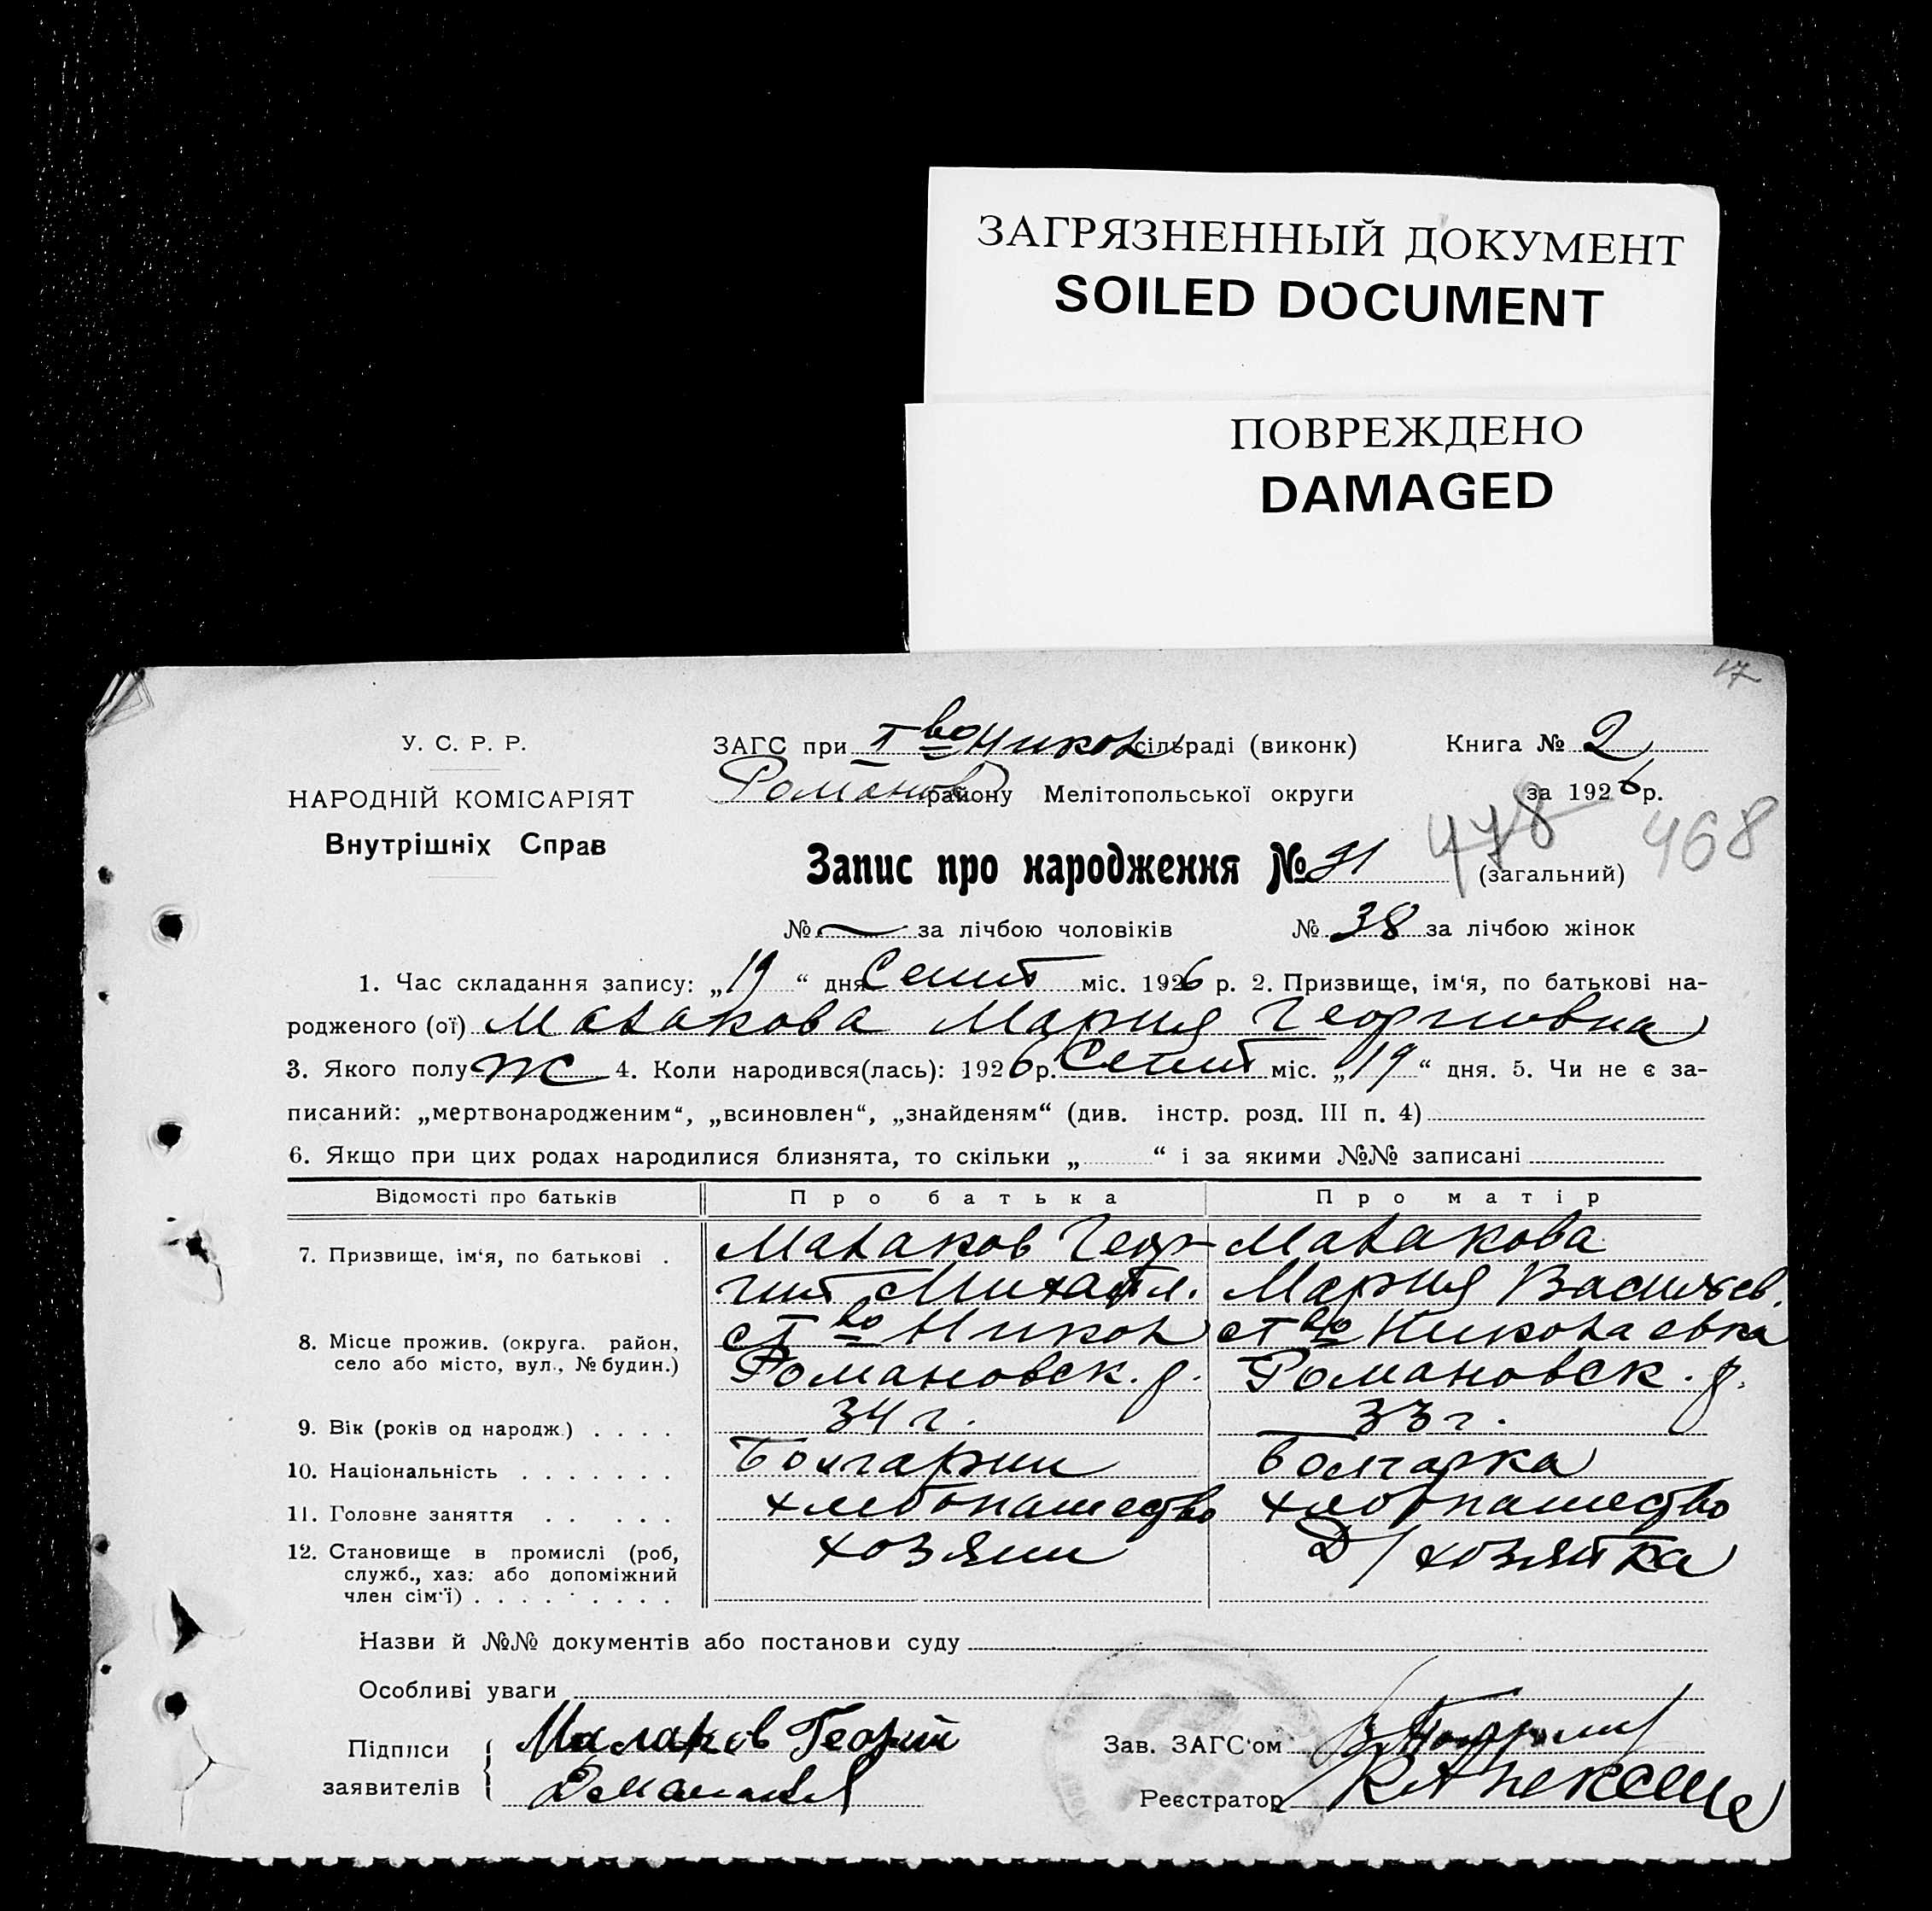 ЗАГРЯЗНЕННЫЙ ДОКУМЕНТ
SOILED DOCUMENT
ПОВРЕЖДЕНО
DAMAGED
17
У. С. Р. Р.
НАРОДНІЙ КОМІСАРІЯТ
Внутрішніх Справ
ЗАГС при Т во Никол сільраді (виконк) Книга № 2
Романов району Мелітопольської округи за 1926 р.
478 468
Запис про народження № 91 (загальний)
№ — за лічбою чоловіків № 38 за лічбою жінок
1. Час складання запису: „19“ дня Сент міс. 1926 р. 2. Призвище, ім‘я, по батькові на-
родженого (ої) Малакова Мария Георгиевна
3. Якого полу ж 4. Коли народився(лась): 1926 р. Сент міс. „19“ дня. 5. Чи не є за-
писаний: „мертвонародженим“, „всиновлен“, „знайденям“ (див. інстр. розд. III п. 4)
6. Якщо при цих родах народилися близнята, то скільки „ “ і за якими №№ записані
Відомості про батьків Про батька Про матір
7. Призвище, ім‘я, по батькові . Малаков Геор- Малакова
гий Михайл. Мария Васильев.
8. Місце прожив. (округа. район, ст во Никол ст во Николаевка
село або місто, вул., № будин.) Романовск. р. Романовск. р.
9. Вік (років од народж.) . . . . 34 г. 33 г.
10. Національність . . . . . . . Болгарин болгарка
11. Головне заняття . . . . . хлебопашество хлебопашество
12. Становище в промислі (роб, хозяин Д/хозяйка
служб., хаз: або допоміжний
член сім‘ї) . . . . . . . . .
Назви й №№ документів або постанови суду
Особливі уваги
Підписи Малаков Георгий Зав. ЗАГС‘ом
заявителів Реєстратор